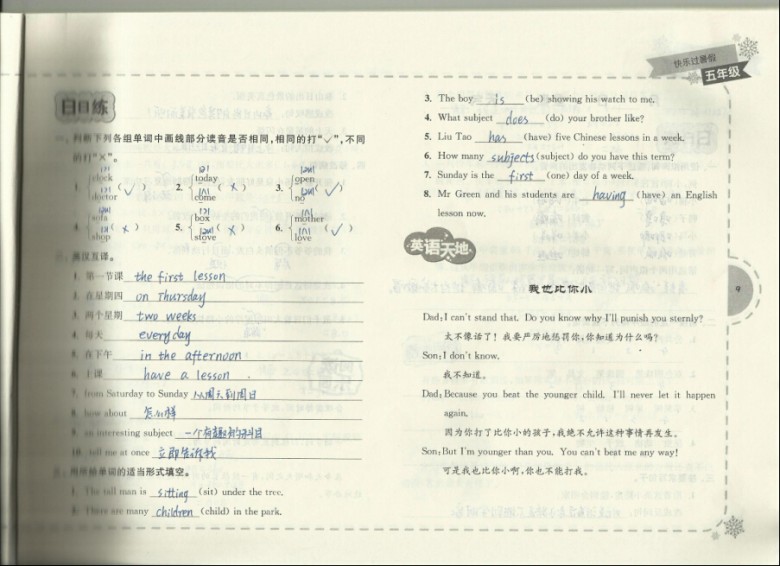 快乐过暑假
五年级
日日练
一、判断下列各组单词中画线部分读音是否相同,相同的打“√”,不同
的打“×”。
1. clock doctor (√) 2. today come (×) 3. open no (√)
4. sofa shop (×) 5. box stove (×) 6. mother love (√)
二、英汉互译。
1. 第一节课 the first lesson
2. 在星期四 on Thursday
3. 两个星期 two weeks
4. 每天 everyday
5. 在下午 in the afternoon
6. 上课 have a lesson
7. from Saturday to Sunday 从周六到周日
8. how about 怎么样
9. an interesting subject 一个有趣的科目
10. tell me at once 立即告诉我
三、用所给单词的适当形式填空。
1. The tall man is sitting (sit) under the tree.
2. There are many children (child) in the park.
3. The boy is (be) showing his watch to me.
4. What subject does (do) your brother like?
5. Liu Tao has (have) five Chinese lessons in a week.
6. How many subjects (subject) do you have this term?
7. Sunday is the first (one) day of a week.
8. Mr Green and his students are having (have) an English
lesson now.
英语天地
我也比你小
Dad: I can't stand that. Do you know why I'll punish you sternly?
太不像话了!我要严厉地惩罚你,你知道为什么吗?
Son: I don't know.
我不知道。
Dad: Because you beat the younger child. I'll never let it happen
again.
因为你打了比你小的孩子,我绝不允许这种事情再发生。
Son: But I'm younger than you. You can't beat me any way!
可是我也比你小啊,你也不能打我。
9